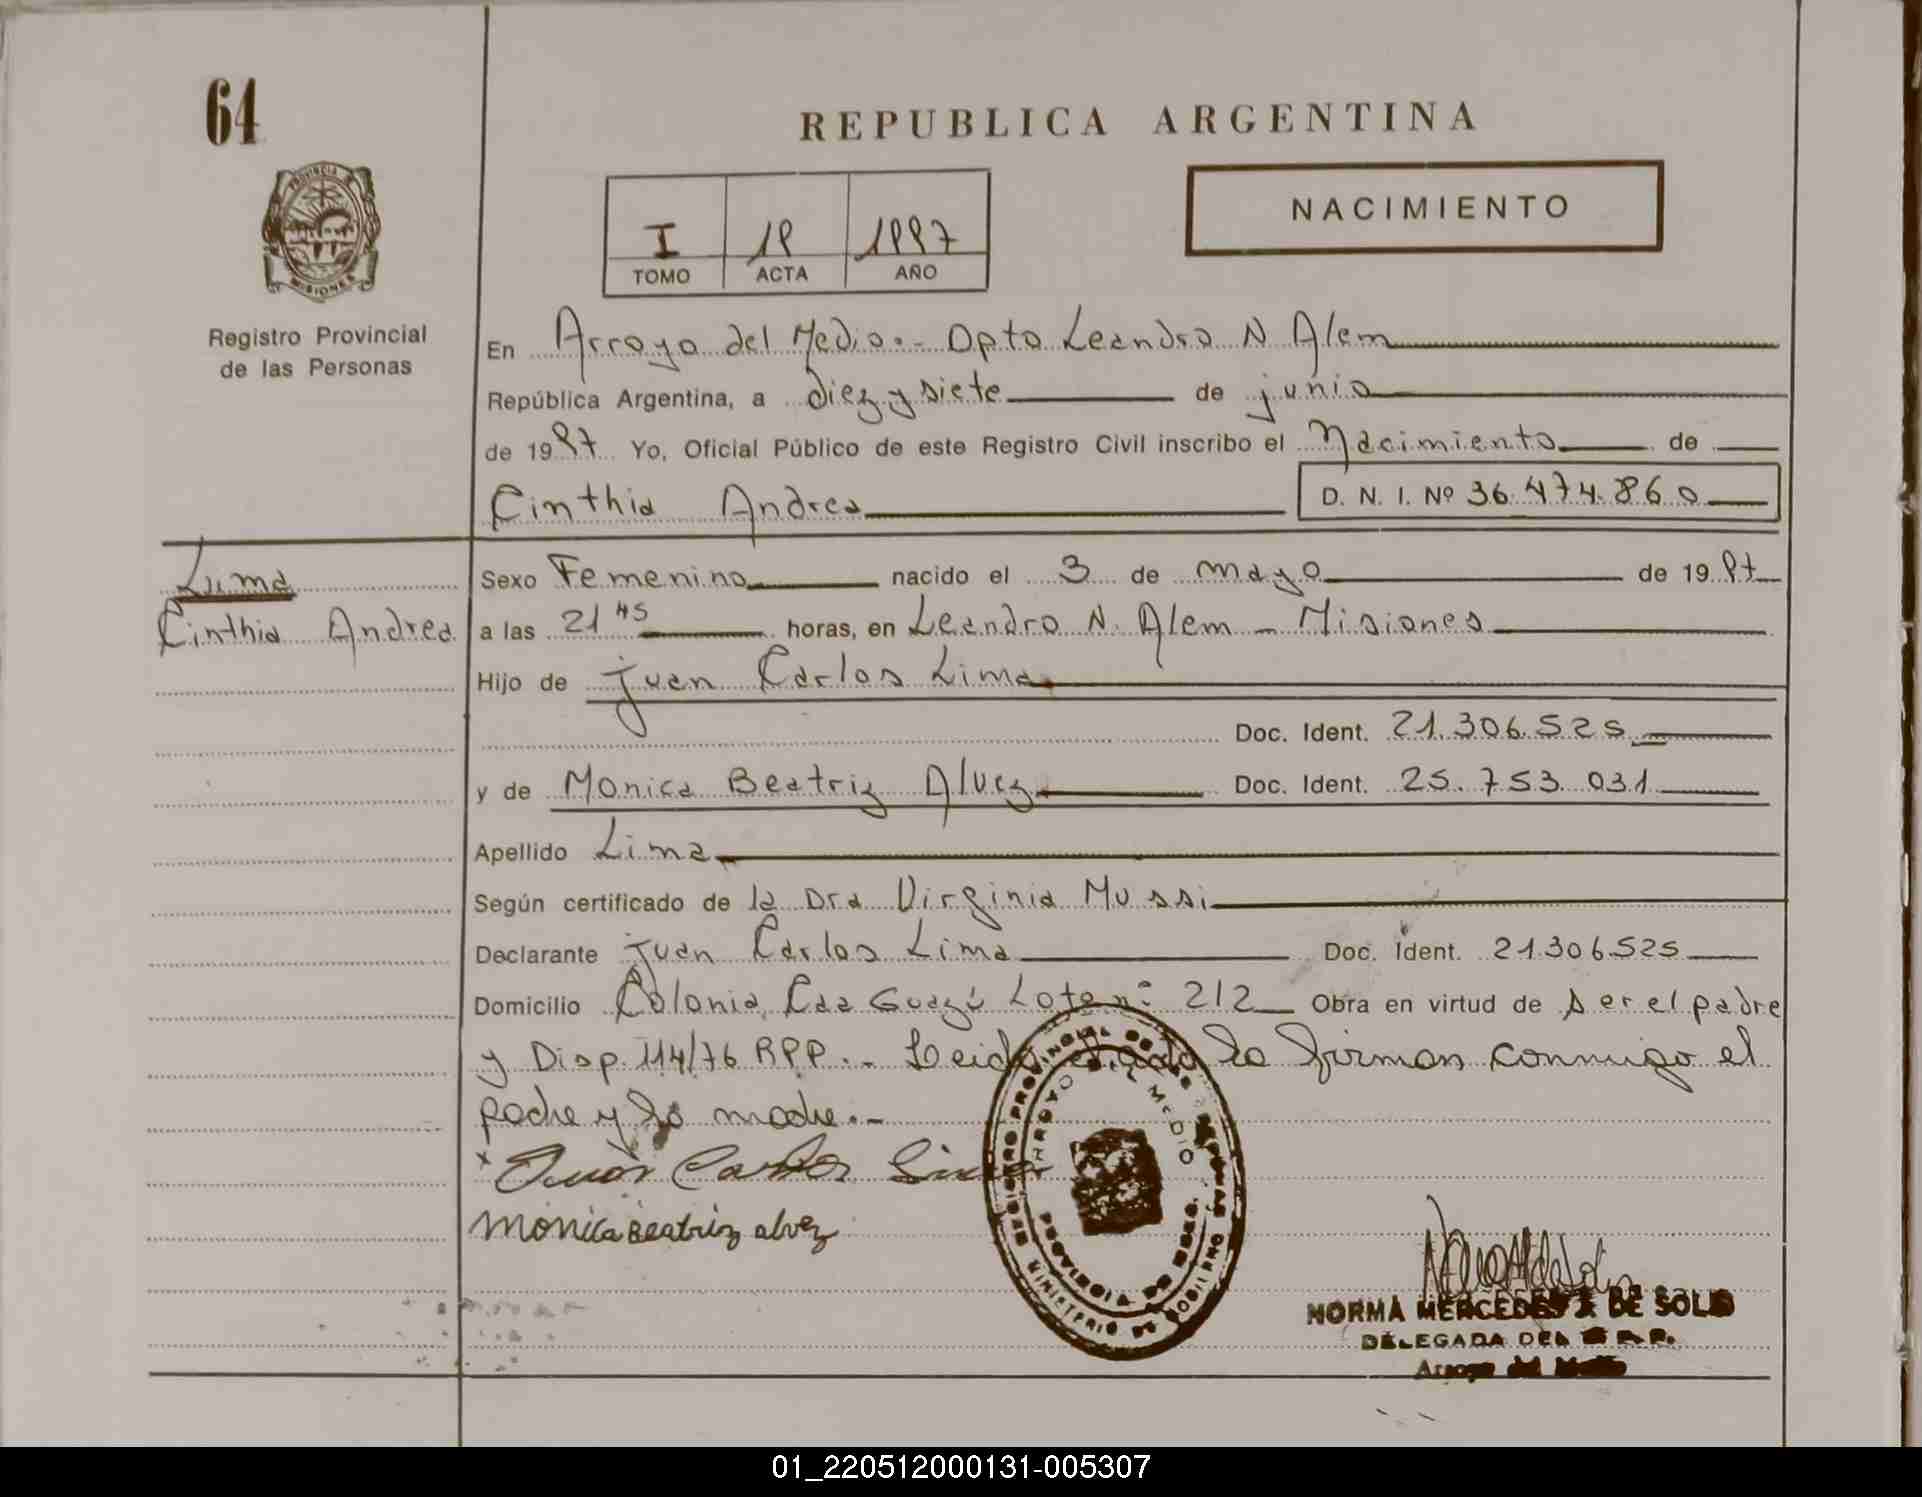 64
REPUBLICA ARGENTINA
PROVINCIA DE
MISIONES
NACIMIENTO
I 19 1997
TOMO ACTA AÑO
Registro Provincial
de las Personas
En Arroyo del Medio.- Dpto Leandro N Alem
República Argentina, a diez y siete de junio
de 1997 Yo, Oficial Público de este Registro Civil inscribo el Nacimiento de
Cinthia Andrea D. N. I. Nº 36.474.860
Lima
Cinthia Andrea
Sexo Femenino nacido el 3 de mayo de 1997
a las 21 45 horas, en Leandro N. Alem - Misiones
Hijo de Juan Carlos Lima
Doc. Ident. 21.306.525
y de Monica Beatriz Alvez Doc. Ident. 25.753.031
Apellido Lima
Según certificado de la Dra Virginia Mussi
Declarante Juan Carlos Lima Doc. Ident. 21.306.525
Domicilio Colonia Caa Guazú Lote nº 212 Obra en virtud de ser el padre
y Disp. 114/76 RPP.- Leida el acta la firman conmigo el
padre y la madre.-
x Juan Carlos Lima
monica Beatriz alvez
REGISTRO PROVINCIAL DE LAS PERSONAS
ARROYO DEL MEDIO
PROVINCIA DE MNES.
MINISTERIO DE GOBIERNO
NORMA MERCEDES A DE SOLIS
DELEGADA DEL R.P.P.
Arroyo del Medio
01_220512000131-005307